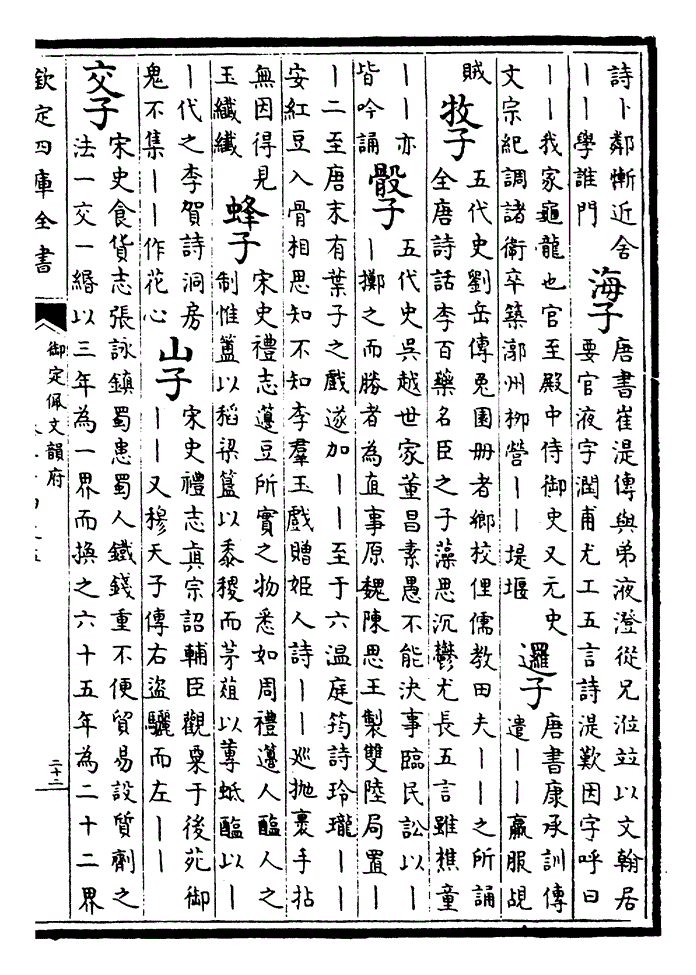 詩卜鄰慚近舍
丨丨學誰門
海子
唐書崔湜傳與弟液澄從兄涖竝以文翰居
要官液字潤甫尤工五言詩湜歎因字呼曰
丨丨我家龜龍也官至殿中侍御史又元史
文宗紀調諸衛卒築漷州柳營丨丨堤堰
邏子
唐書康承訓傳
遣丨丨羸服覘
賊
牧子
五代史劉岳傳兎園册者鄉校俚儒教田夫丨丨之所誦
全唐詩話李百藥名臣之子藻思沉鬱尤長五言雖樵童
丨丨亦
皆吟誦
骰子
五代史吳越世家董昌素愚不能決事臨民訟以丨
丨擲之而勝者為直事原魏陳思王製雙陸局置丨
丨二至唐末有葉子之戲遂加丨丨至于六溫庭筠詩玲瓏丨丨
安紅豆入骨相思知不知李羣玉戲贈姬人詩丨丨巡抛裹手拈
無因得見
玉纖纖
蜂子
宋史禮志籩豆所實之物悉如周禮籩人醢人之
制惟簠以稻粱簋以黍稷而茅菹以蓴蚳醢以丨
丨代之李賀詩洞房
鬼不集丨丨作花心
山子
宋史禮志真宗詔輔臣觀粟于後苑御
丨丨又穆天子傳右盜驪而左丨丨
交子
宋史食貨志張詠鎮蜀患蜀人鐵錢重不便貿易設質劑之
法一交一緡以三年為一界而換之六十五年為二十二界
欽定四庫全書
御定佩文韻府
二十二